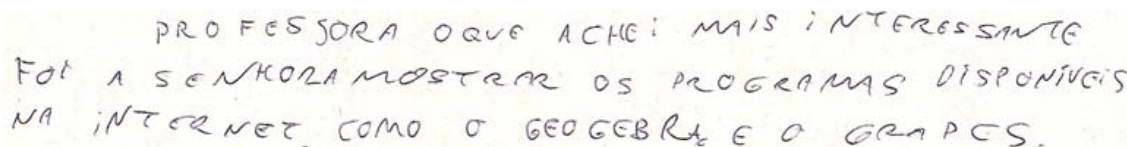 PROFESSORA OQUE ACHEi MAIS iNTERESSANTE
FOi A SENHORA MOSTRAR OS PROGRAMAS DiSPONÍVEiS
NA iNTERNET, COMO O GEOGEBRA, E O GRAPES.